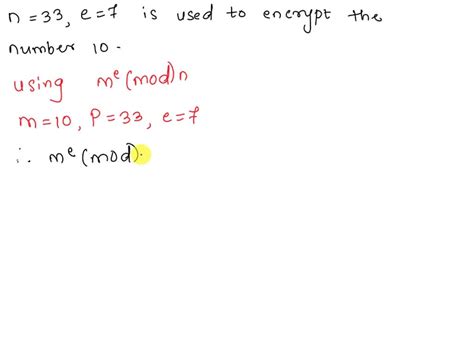 n = 33, e = 7 is used to encrypt the
number 10.
using m^e (mod) n
m = 10, P = 33, e = 7
∴ m^e (mod).